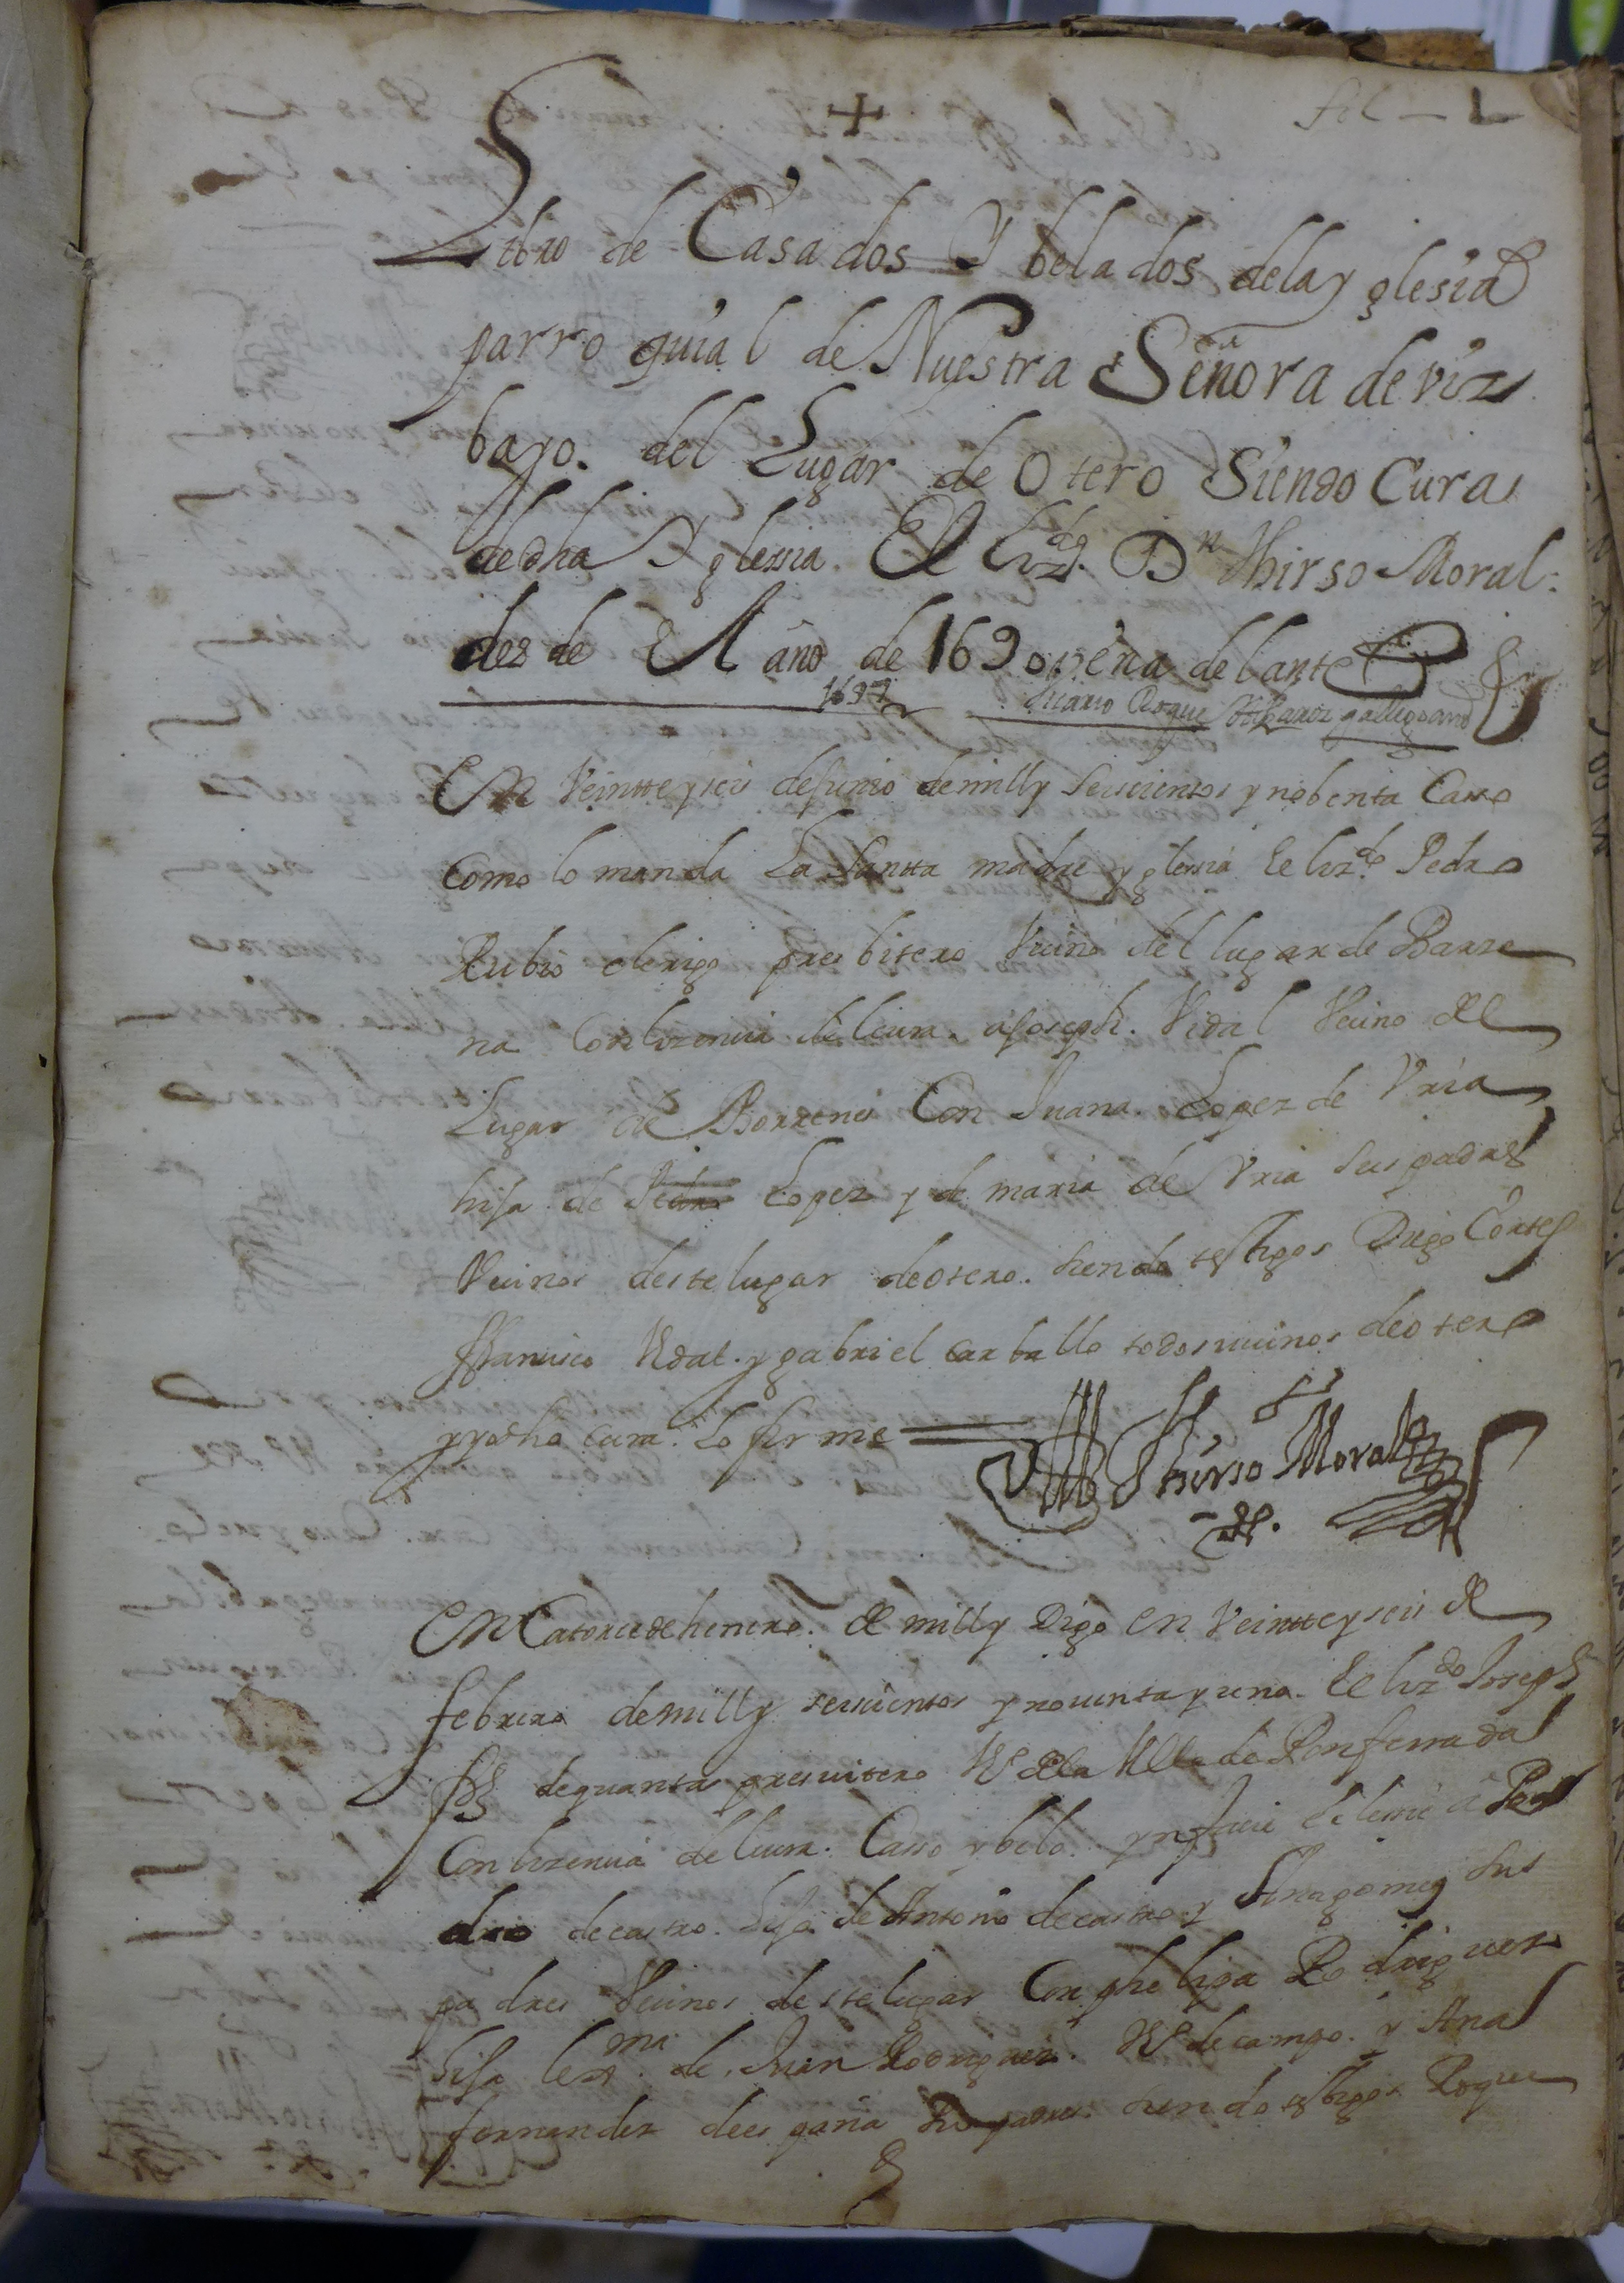 fol — 1
Libro de Casados Y belados de la yglesia
parroquial de Nuestra Señora de viz
bayo. del Lugar de Otero Siendo Cura
de dha Yglessia El Lizdo. Dn Thirso Moral:
des de El año de 1690 en a delante
1697 Roque
En Veintte y seis de Junio de mill y seiscientos y nobenta Casso
Como lo manda La Santta madre yglessia El lizdo Pedro
Rubio clerigo presbitero Vecino del lugar de Barze
na Con lizencia del cura. a Joseph. Vidal Vecino del
Lugar de Borrenes Con Juana Lopez de Vria
hija de Pedro Lopez y de maria de Vria sus padres
Vecinos deste lugar de otero. siendo testigos Diego Cortes
ffrancisco Vidal. y gabriel carballo todos vecinos de otero
y yo dho Cura. Lo firme Thirso Moral
En Catorce de henero. de mill y Digo en Veintte y seis de
febrero de mill y seiscientos y noventa y uno. El lizdo Joseph
de quanta presvitero Vo de la Villa de Ponferrada
Con lizencia del cura. Casso y belo. yn facie eclesie a Pe
dro de castro. hijo de Antonio de castro y Ana gomez sus
padres Vecinos deste lugar Con phelipa Rodriguez
hija lexma. de Juan Rodriguez. Vo de campo. y Ana
fernandez de españa sus padres. siendo testigos Roque